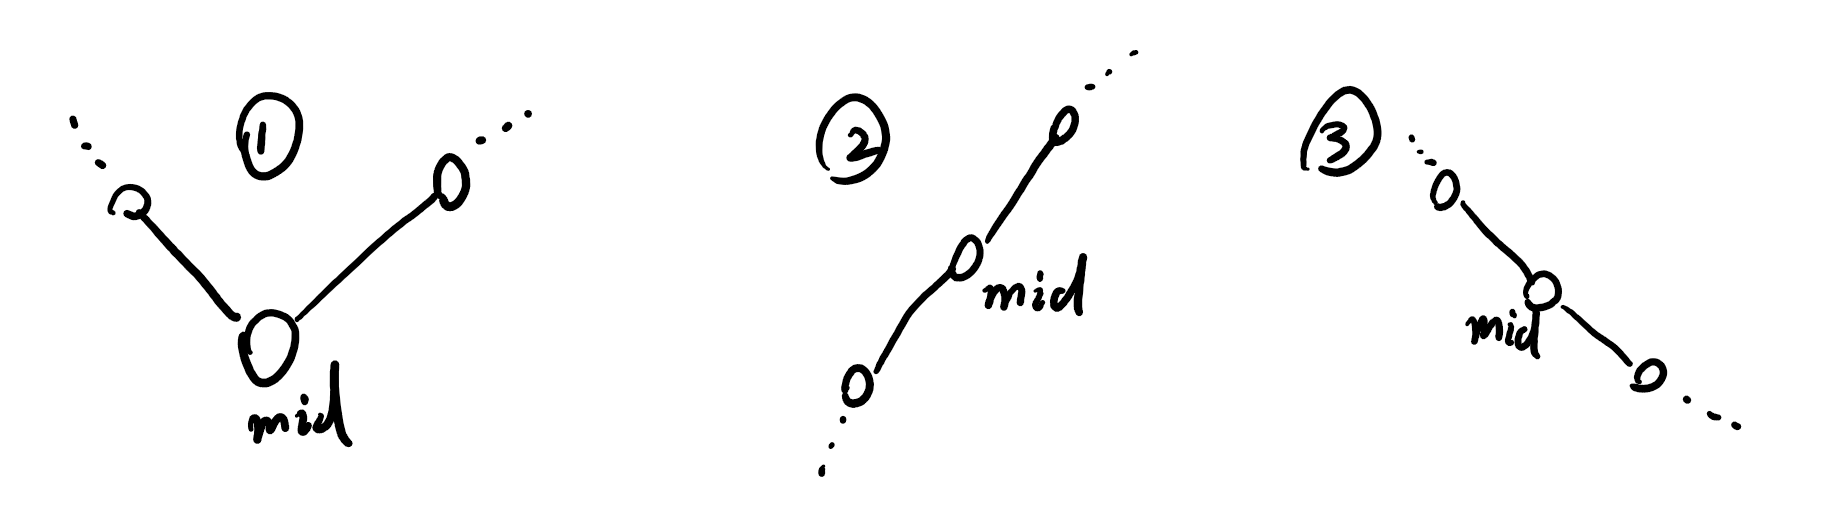 ①
mid
②
mid
③
mid